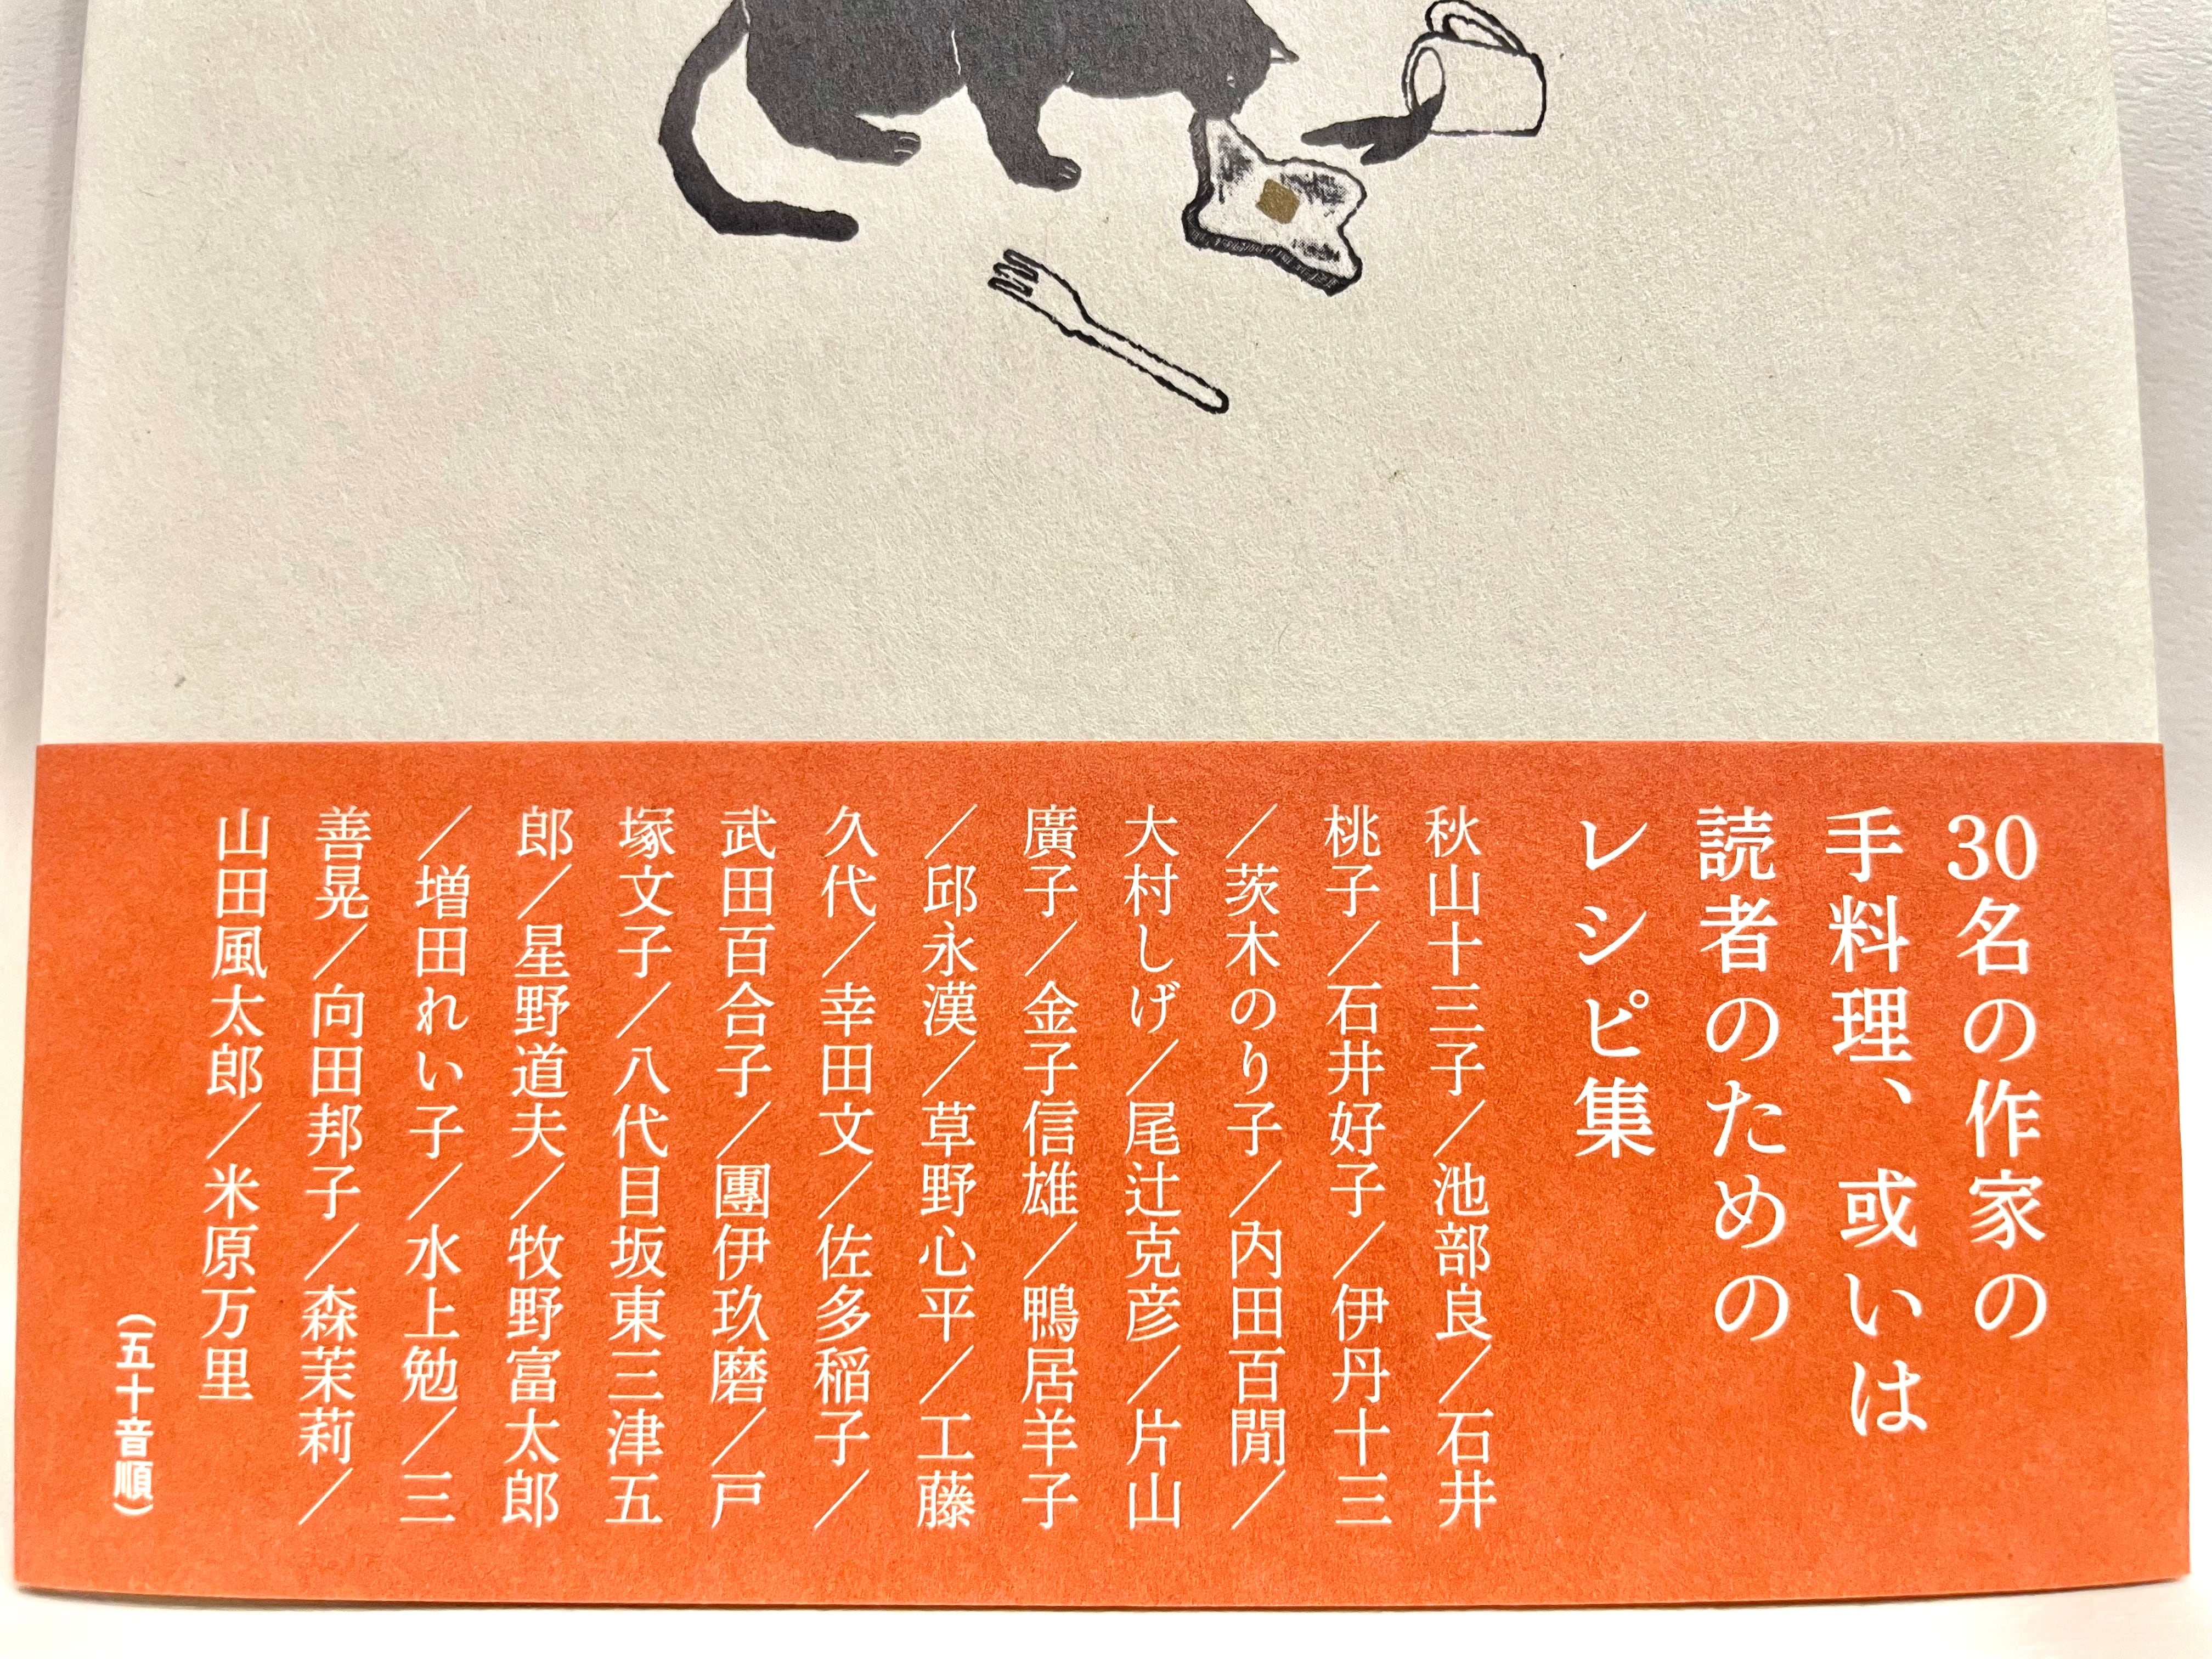 30名の作家の
手料理、或いは
読者のための
レシピ集
秋山十三子／池部良／石井
桃子／石井好子／伊丹十三
／茨木のり子／内田百閒／
大村しげ／尾辻克彦／片山
廣子／金子信雄／鴨居羊子
／邱永漢／草野心平／工藤
久代／幸田文／佐多稲子／
武田百合子／團伊玖磨／戸
塚文子／八代目坂東三津五
郎／星野道夫／牧野富太郎
／増田れい子／水上勉／三
善晃／向田邦子／森茉莉／
山田風太郎／米原万里
（五十音順）